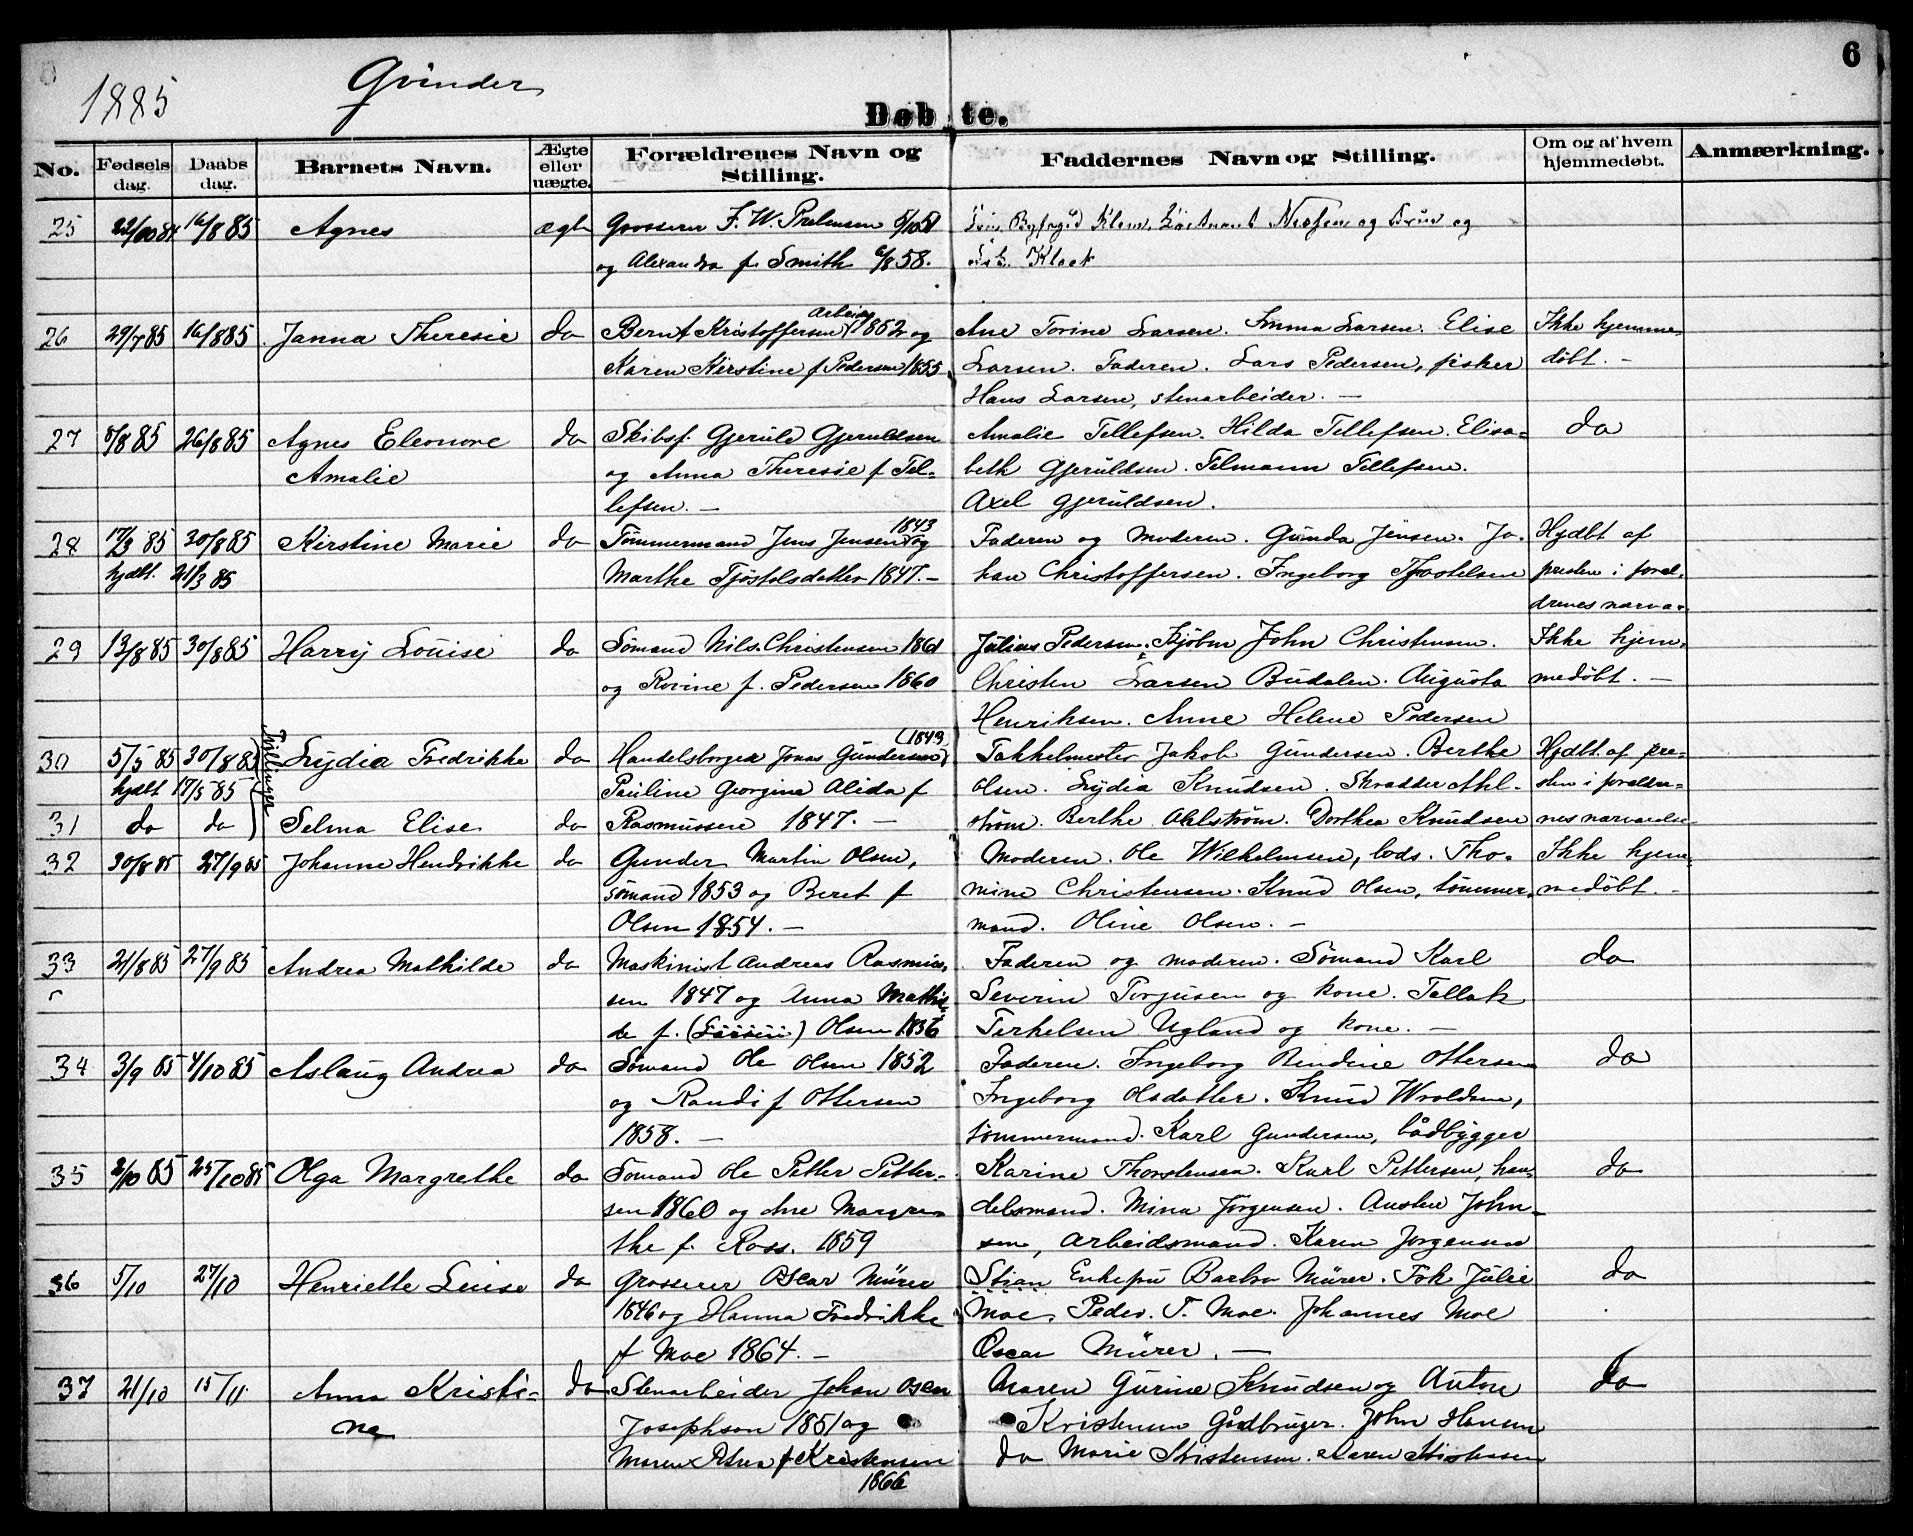 6
1885 Qvinder
Døbte.
No. Fødsels dag. Daabs dag. Barnets Navn. Ægte eller uægte. Forældrenes Navn og Stilling. Faddernes Navn og Stilling. Om og af hvem hjemmedøbt. Anmærkning.
25 22/10 84 16/8 85 Agnes ægte Grosserer F. W.
og Alexandra f. Smith 6/8 58. Klock
26 29/7 85 16/8 85 Janna Theresie do Bernt Kristoffersen Arbeids 1852 og Ane Torine Larsen. Emma Larsen. Elise Ikke hjemme-
Karen Kirstine f Pedersen 1855 Larsen. Faderen. Lars Pedersen, fisker døbt. -
Hans Larsen, stenarbeider. -
27 5/8 85 26/8 85 Agnes Eleonore do Skibsf. Gjeruld Gjeruldsen Amalie Tellefsen. Hilda Tellefsen. Elisa- do
Amalie og Anna Theresie f Tel- beth Gjeruldsen. Telmann Tellefsen.
lefsen. - Axel Gjeruldsen.
28 17/3 85 30/8 85 Kirstine Marie do Tømmermand Jens Jensen 1843 og Faderen og Moderen. Gunda Jensen. Jo- Hjdbt af
hjdbt. 21/3 85 Marthe Tjøstolsdatter 1847. - han Christoffersen. Ingeborg Tjøstelsen presten i forel-
drenes nærvæ-
29 13/8 85 30/8 85 Harry Louise do Sømand Nils Christensen 1861 Julius Pedersen. Kjøbm John Christensen. Ikke hjem-
og Rovine f. Pedersen 1860 Christen Larsen Budalen. Augusta medøbt. -
Henriksen. Anne Helene Pedersen
30 5/5 85 30/8 85 Tvillinger Lydia Fredrikke do Handelsborger Jonas Gundersen (1843) Takkelmester Jakob Gundersen. Berthe Hjdbt. af pre-
hjdbt 17/5 85 Pauline Georgine Alida f Olsen. Lydia Knudsen. Skrædder Ahl- sten i foreldre-
31 do do Selma Elise do Rasmussen 1847. - strøm. Berthe Ahlstrøm. Dorthea Knudsen nes nærværelse
32 30/8 85 27/9 85 Johanne Hendrikke do Gunder Martin Olsen, Moderen. Ole Wilhelmsen, lods. Tho- Ikke hjem-
sømand 1853 og Beret f mine Christensen. Knud Olsen, tømmer- medøbt. -
Olsen 1854. - mand. Oline Olsen. -
33 21/8 85 27/9 85 Andrea Mathilde do Maskinist Andreas Rasmus- Faderen og moderen. Sømand Karl do
sen 1847 og Anna Mathil- Severin Torjusen og kone. Tallak
de f. Olsen 1856 Terkelsen Ugland og kone. -
34 3/9 85 4/10 85 Aslaug Andrea do Sømand Ole Olsen 1852 Faderen. Ingeborg Bendine Ottersen do
og Randi f Ottersen Ingeborg Olsdatter. Knud Wroldsen,
1858. - tømmermand. Karl Gundersen, bådbygger
35 2/10 85 25/10 85 Olga Margrethe do Sømand Ole Petter Petter- Karine Thorstensen. Karl Pettersen, han- do
sen 1860 og Ane Margre- delsmand. Mina Jørgensen. Austen John-
the f. Ross. 1859 sen, arbeidsmand. Karen Jørgensen
36 5/10 27/10 Henriette Luise do Grosserer Oscar Mürer Stian Enkefru Barbro Mürer. Frk Julie do
1846 og Hanna Fredrikke Moe. Peder. T. Moe. Johannes Moe
f Moe 1864. - Oscar Mürer. -
37 21/10 15/11 Anna Kristi- do Stenarbeider Johan Oscar Maren Gurine Knudsen og Anton do
ne Josephson 1851 og Kristensen Gådbruger. John Hansen
Maren Petrea f Kristensen do Marie Kristensen. Karen Kristensen
1866